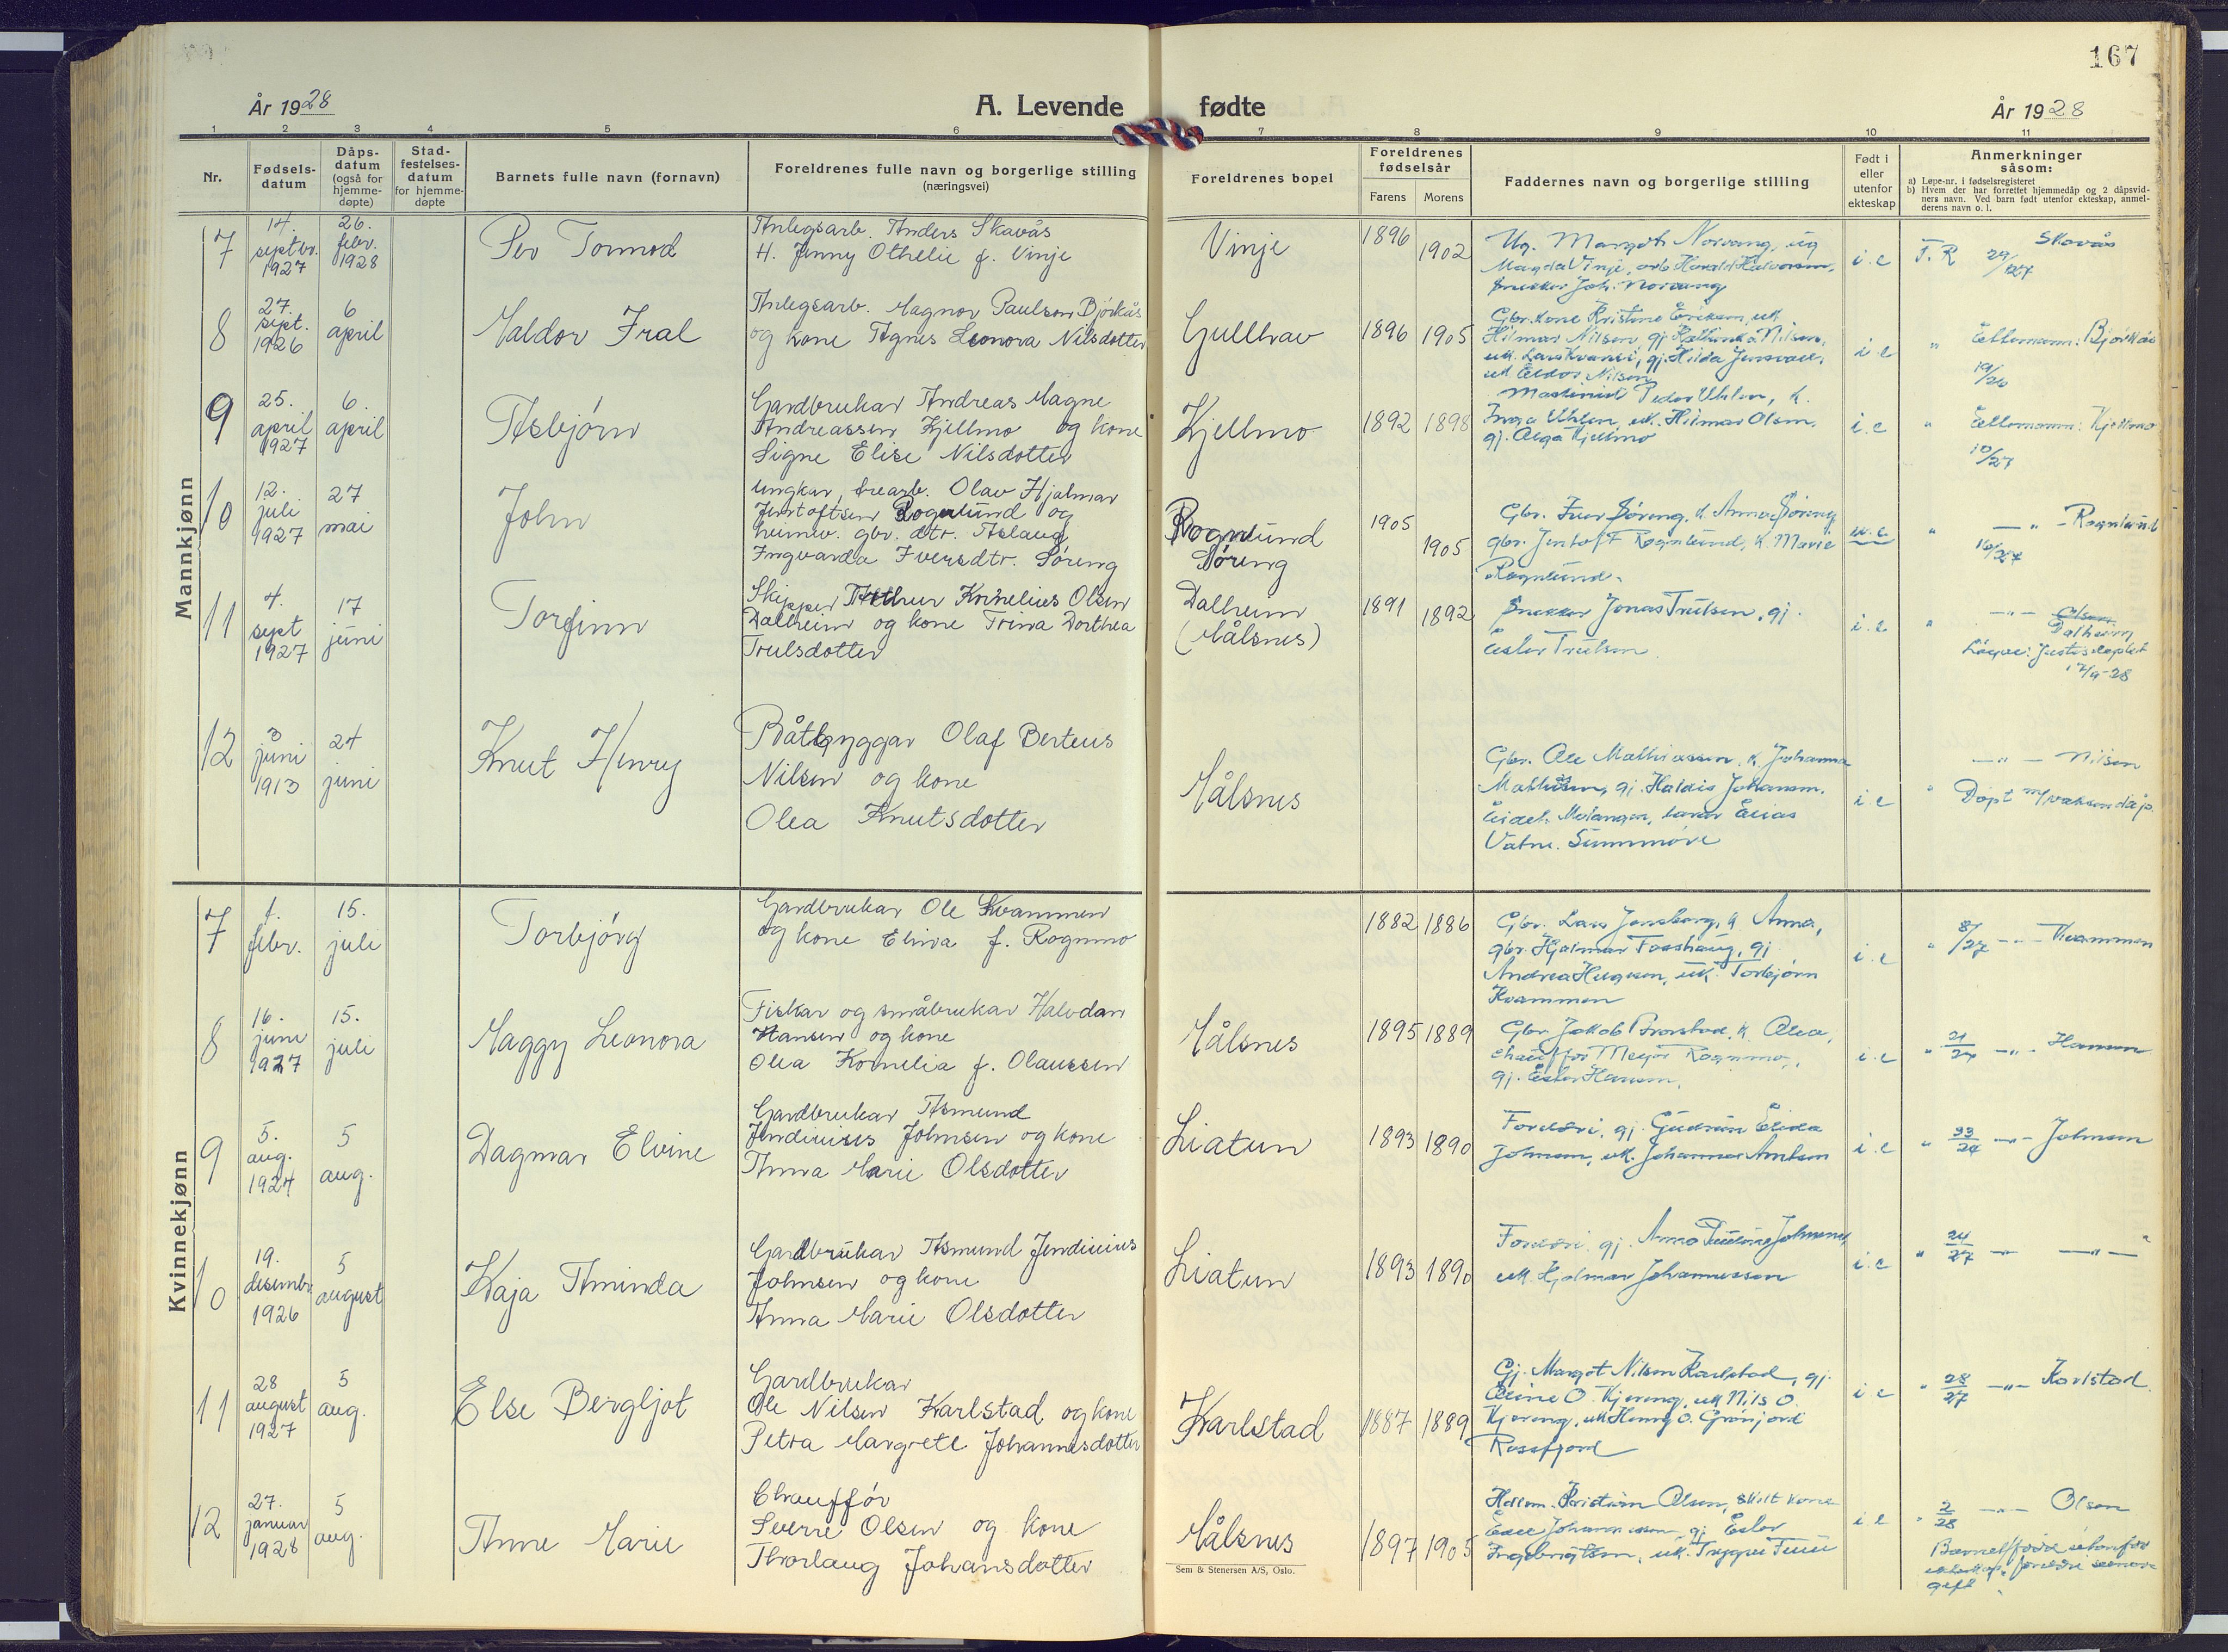 167
År 1928
A. Levende fødte
År 1928
1 2 3 4 5 6 7 8 9 10 11
Nr.
Fødsels-
datum
Dåps-
datum
(også for
hjemme-
døpte)
Stad-
festelses-
datum
for hjemme-
døpte
Barnets fulle navn (fornavn)
Foreldrenes fulle navn og borgerlige stilling
(næringsvei)
Foreldrenes bopel
Foreldrenes
fødselsår
Farens Morens
Faddernes navn og borgerlige stilling
Født i
eller
utenfor
ekteskap
Anmerkninger
såsom:
a) Løpe-nr. i fødselsregisteret
b) Hvem der har forrettet hjemmedåp og 2 dåpsvid-
ners navn. Ved barn født utenfor ekteskap, anmel-
derens navn o. l.
Mannkjønn
7
14.
septbr.
1927
26.
febr.
1928
Per Tormod
Anlegsarb. Anders Skavås
H. Jenny Othelie f. Vinje
Vinje
1896 1902
Ug. Margoth Norvang, ug
Magda Vinje, arb. Harald Halvorsen,
Snekker Joh. Norvang
i. e
F. R 29/127 Skavås
8
27.
sept.
1926
6
april
Haldor Fral
Anlegsarb. Magnor Paulson Bjørkås
og kone Agnes Leonora Nilsdotter
Gullhav
1896 1905
Gbr. kone Kristine Eriksen, uk.
Hilmar Nilsen, gj. Nilsen,
uk. Lars gj. Hilda
uk Eldor Nilsen
i. e
" Bjørkås
19/26
9
25.
april
1927
6.
april
Asbjørn
Gardbrukar Andreas Magne
Andreassen Kjellmo og kone
Signe Elise Nilsdotter
Kjellmo
1892 1898
Maskinist Peder Uhlen, k.
Inga Uhlen, uk. Hilmar Olsen,
gj. Olga Kjellmo
i. e
" Kjellmo
10/27
10
12.
juli
1927
27
mai
John
Ungkar, Olav Hjalmar
Jentoftsen Rognlund og
heimev. gbr. dtr. Aslaug
Ingvarda Iversdtr. Søreng
Rognlund
Søreng
1905 1905
Gbr. Iver Søreng, k. Anna Søreng
gbr. Jentoft Rognlund, k. Marie
Rognlund.
u. e
" — " — Rognlund
16/27
11
4.
sept
1927
17
juni
Torfinn
Skipper Arthur Kornelius Olsen
Dalheim og kone Trina Dorthea
Trulsdotter
Dalheim
(Målsnes)
1891 1892
Snekker Jonas Trulsen, gj.
Ester Trulsen.
i. e
" — " — Olsen
Dalheim
17/9-28
12
3
juni
1913
24
juni
Knut Henry
Båtbyggar Olaf Berteus
Nilsen og kone
Olea Knutsdotter
Målsnes
Gbr. Ole Mathiassen, k. Johanna
Mathisen, gj. Haldis Johansen.
Eidet. Malangen, lærar Elias
Vatne. Sunnmøre
i. e
— " — Nilsen
" Døpt m/vaksendåp.
Kvinnekjønn
7
1.
febr.
15.
juli
Torbjørg
Gardbrukar Ole Kvammen
og kone Elina f. Rognmo
1882 1886
Gbr. Lars Jensborg, k Anna,
gbr. Hjalmar Fosshaug, gj
Andrea Hugsen, uk. Torbjørn
Kvammen
i. e
" 8/27 — " — Kvammen
8
16.
juni
1927
15.
juli
Maggy Leonora
Fiskar og småbrukar Halvdan
Hansen og kone
Olea Kornelia f. Olaussen
Målsnes
1895 1889
Gbr. Jakob k. Olea,
chauffør Meyer Rognmo,
gj. Ester Hansen.
i. e
" 21/27 — " — Hansen
9
5.
aug.
1924
5
aug.
Dagmar Elvine
Gardbrukar Asmund
Jendinius Johnsen og kone
Anna Marie Olsdotter
Liatun
1893 1890
Foreldri, gj. Gudrun Elida
Johnsen, uk. Johannes Antsen
i. e
" 33/24 — " — Johnsen
10
19.
desembr
1926
5
august
Kaja Aminda
Gardbrukar Asmund Jendinius
Johnsen og kone
Anna Marie Olsdotter
Liatun
1893 1890
Foreldri. gj. Anna Pauline Johnsen,
uk. Hjalmar Johannessen
i. e
" 24/27 — " — — " —
11
28
august
1927
5
aug.
Else Bergljot
Gardbrukar
Ole Nilsen Karlstad og kone
Petra Margrete Johannesdotter
Karlstad
1887 1889
Gj. Margot Nilsen Karlstad, gj.
Eline O. Kjereng, uk Nils O.
Kjereng, uk Henry O. Grønjord
Rossfjord
i e
" 28/27 — " — Karlstad.
12
27.
januar
1928
5
aug.
Anne Marie
Chauffør
Sverre Olsen og kone
Thorlaug Johansdotter
Målsnes
1897 1905
Kristian Olsen, skilt kone
gj Ester
Ingebrigtsen, uk. Trygve
i. e
" 2/28 — " — Olsen
Barnet født utenfor
ekteskap, foreldri seenare
gift
Sem & Stenersen A/S, Oslo.